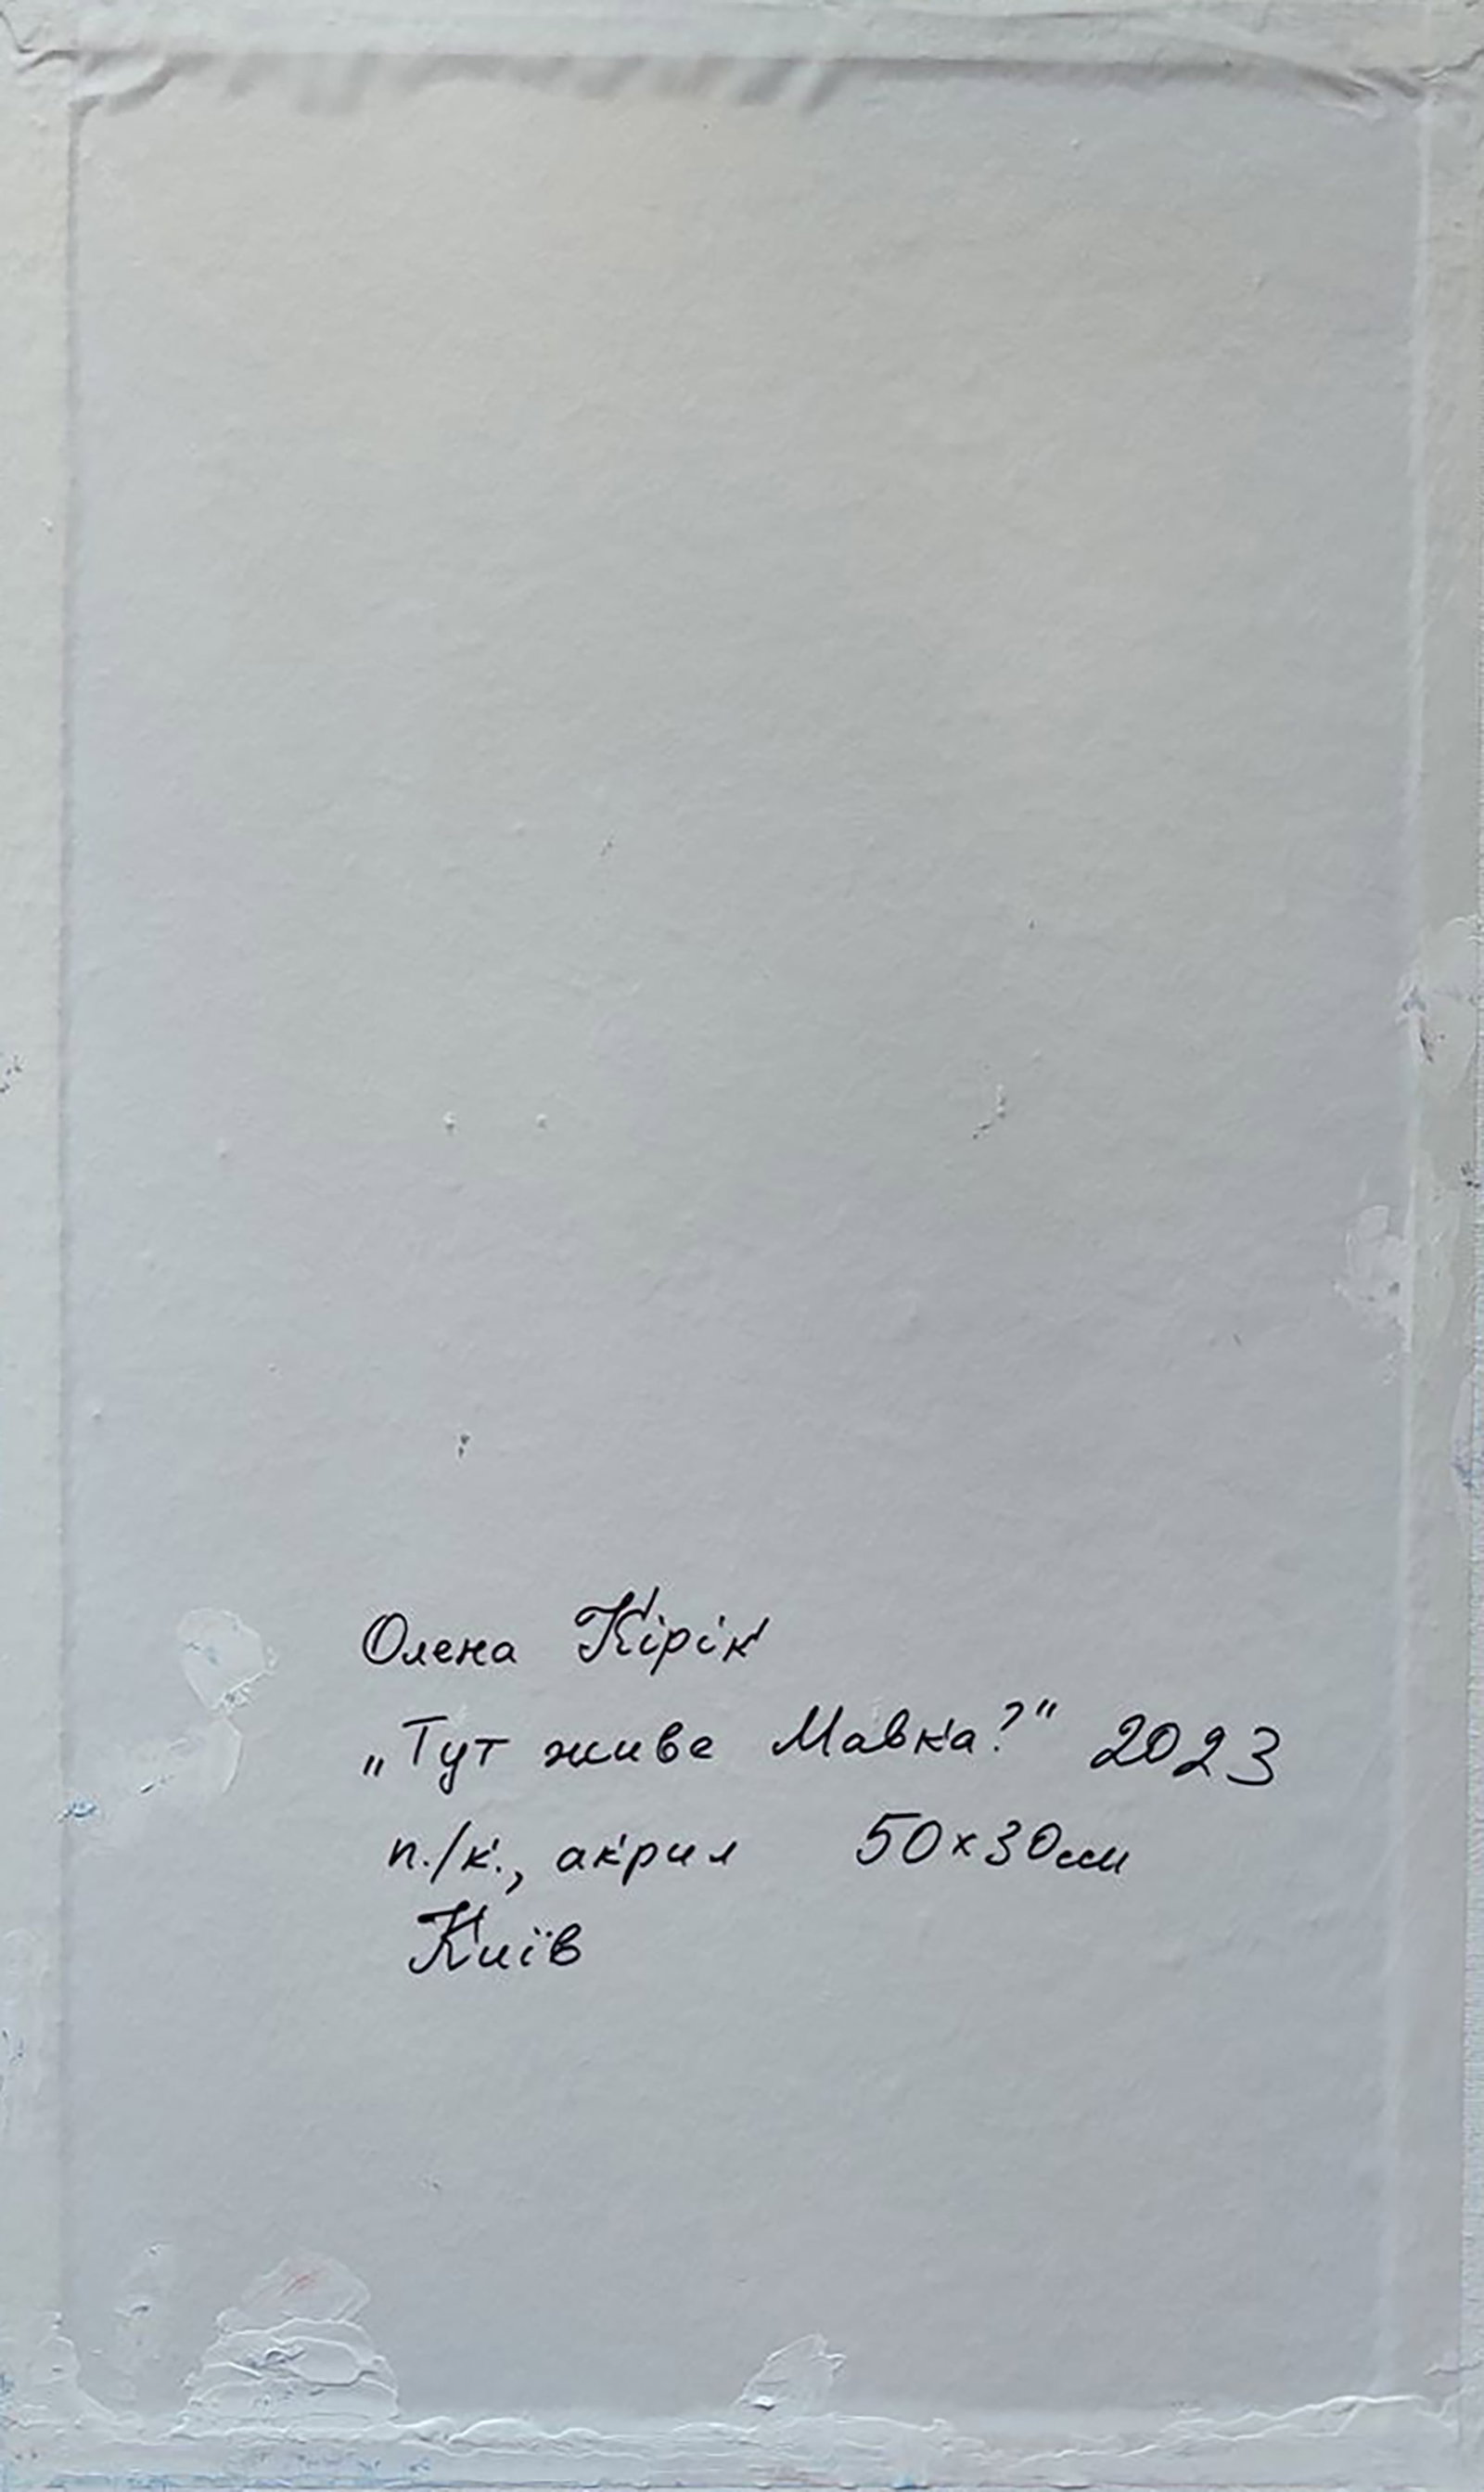 Олена Кірік
„Тут живе Мавка?" 2023
п./к., акрил 50х30см
Київ